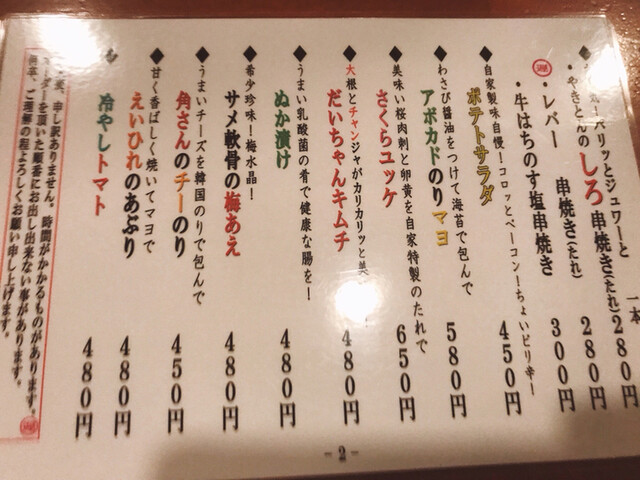 一本
パリッとジュワーと
・やきとんのしろ 串焼き(たれ) 280円
・レバー 串焼き(たれ) 280円
・牛はちのす塩串焼き 300円
◆自家製味自慢!コロッとベーコン!ちょいピリ辛!
ポテトサラダ 450円
◆わさび醤油をつけて海苔で包んで
アボカドのりマヨ 580円
◆美味い桜肉刺と卵黄を自家特製のたれで
さくらユッケ 650円
◆大根とチャンジャがカリカリッと美
だいちゃんキムチ 480円
◆うまい乳酸菌の肴で健康な腸を!
ぬか漬け 480円
◆希少珍味!梅水晶!
サメ軟骨の梅あえ 480円
◆うまいチーズを韓国のりで包んで
角さんのチーのり 450円
◆甘く香ばしく焼いてマヨで
えいひれのあぶり 480円
◆冷やしトマト 480円
申し訳ありません。時間がかかるものがあります。
オーダーを頂いた順番にお出し出来ない事があります。
ご理解の程よろしくお願い申し上げます。
-2-